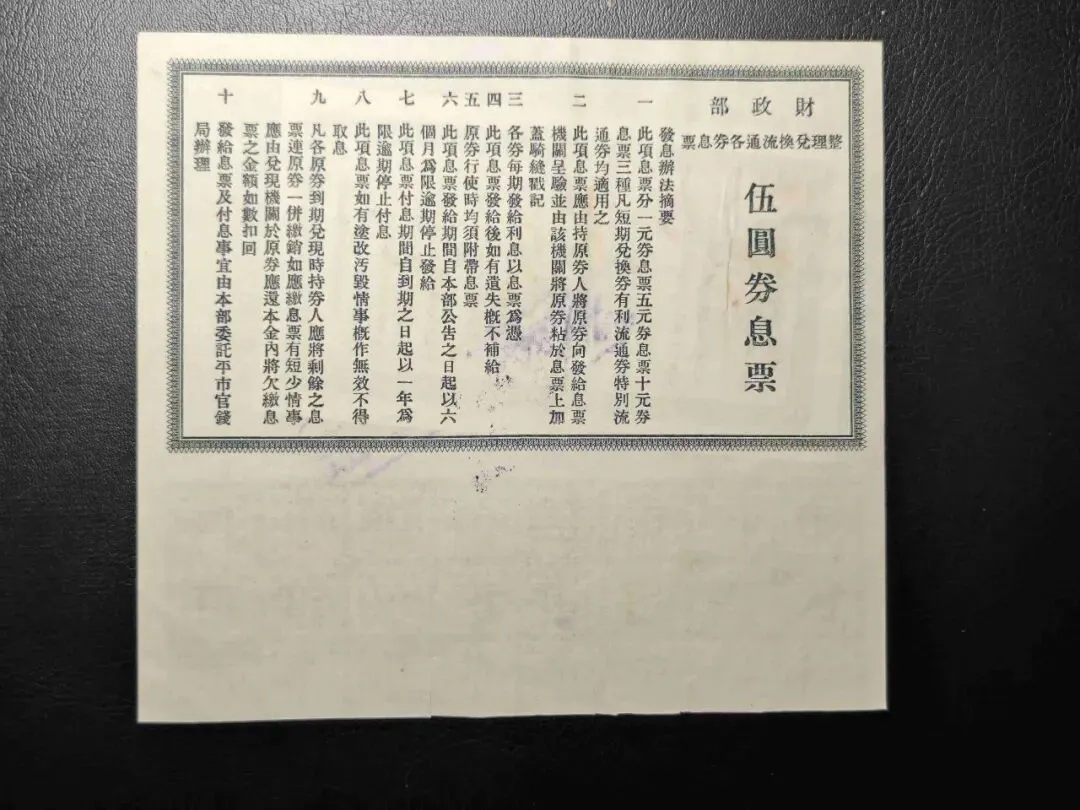 財政部
整理兌換流通各券息票
伍圓券息票
發息辦法摘要
一 此項息票分一元券息票五元券息票十元券
息票三種凡短期兌換券有利流通券特別流
通券均適用之
二 此項息票應由持原券人將原券向發給息票
機關呈驗並由該機關將原券粘於息票上加
蓋騎縫戳記
三 各券每期發給利息以息票爲憑
四 此項息票發給後如有遺失槪不補給
五 原券行使時均須附帶息票
六 此項息票發給期間自本部公告之日起以六
個月爲限逾期停止發給
七 此項息票付息期間自到期之日起以一年爲
限逾期停止付息
八 此項息票如有塗改汚毀情事槪作無效不得
取息
九 凡各原券到期兌現時持券人應將剩餘之息
票連原券一併繳銷如應繳息票有短少情事
應由兌現機關於原券應還本金內將欠繳息
票之金額如數扣回
十 發給息票及付息事宜由本部委託平市官錢
局辦理